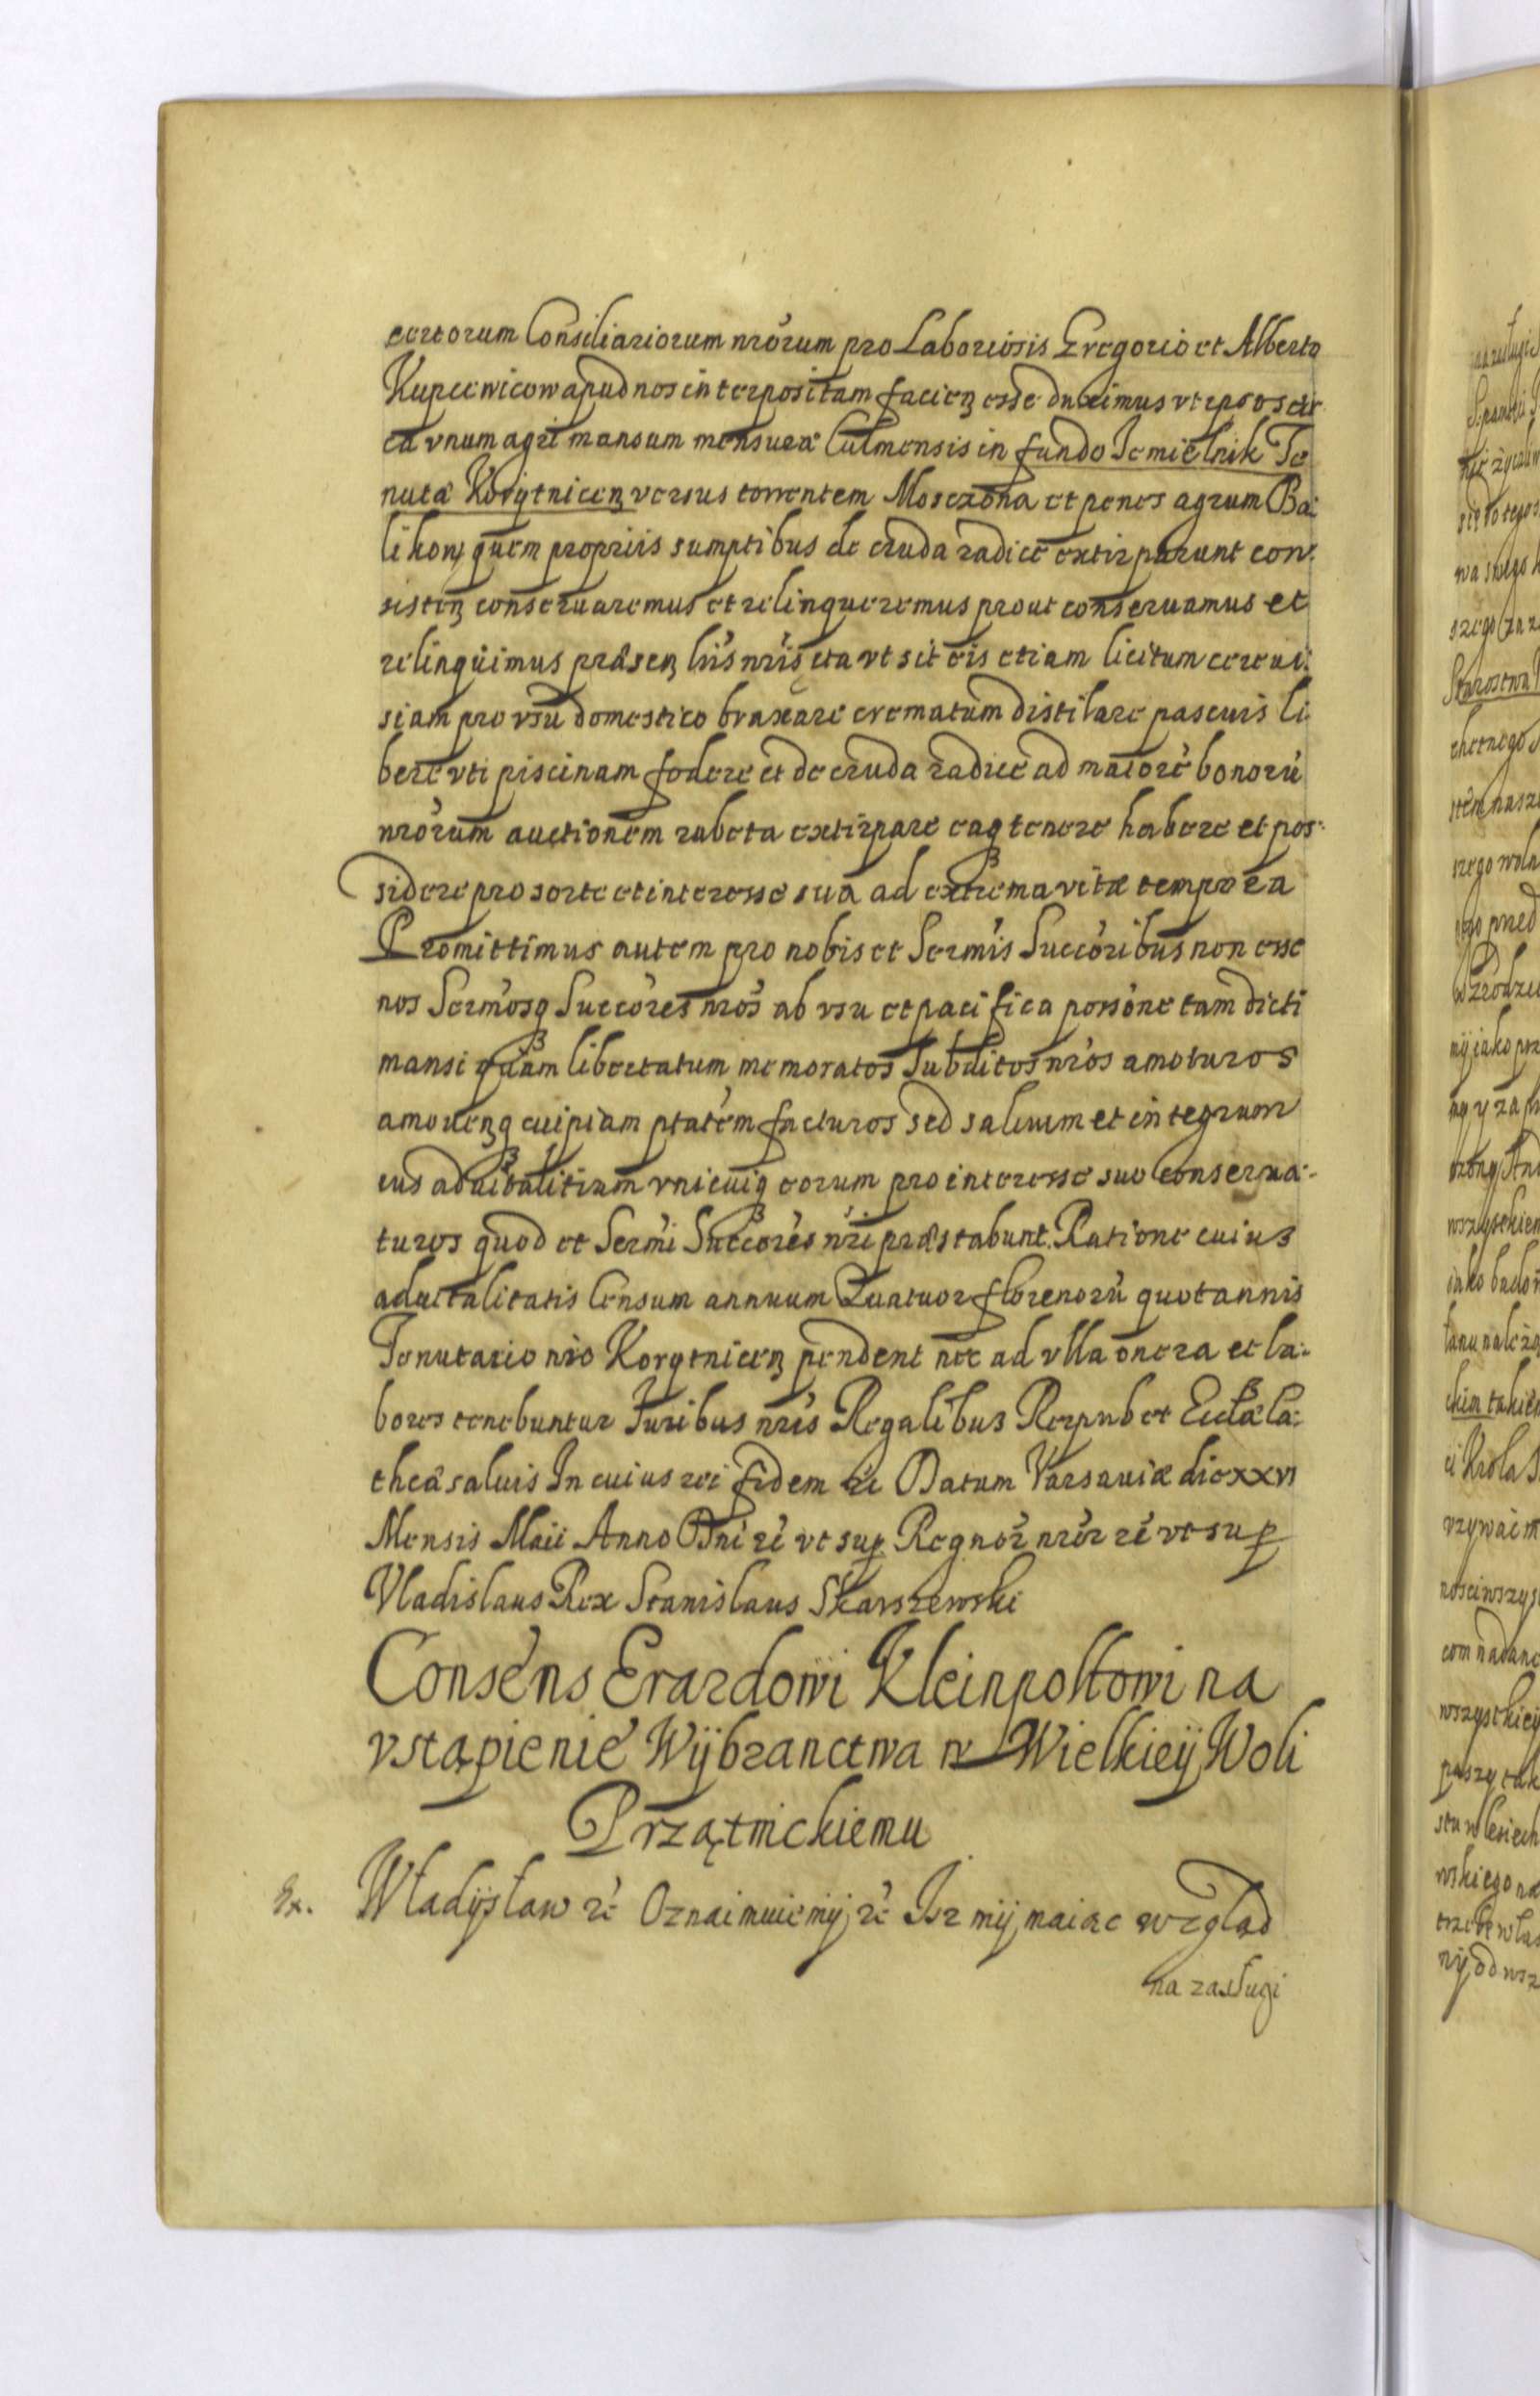 certorum Consiliariorum nrórum pro Laboriosis Gregorio et Alberto
Kupcewicow apud nos interpositam facien esse duximus vt ipsos cir
ca vnum agri mansum mensuræ Culmensis in fundo Jemielnik Te
nutæ Korytnicen versus torrentem Mosczona et penes agrum Ba:
likow quem propriis sumptibus de cruda radice extirparunt con:
sisten conseruaremus et relinqueremus prout conseruamus et
relinquimus præsen lris nris ita vt sit eis etiam licitum cereui:
siam pro vsu domestico braxare crematum distilare pascuis li
bere vti piscinam fodere et de cruda radice ad maiore bonorū
nrórum auctionem rubeta extirpare eaq tenere habere et pos:
sidere pro sorte et interesse sua ad extrema vitæ tempora
Promittimus autem pro nobis et Sermis Succoribus non esse
nos Sermosq Succores nros ab vsu et pacifica possone tam dicti
mansi quam libertatum memoratos Subditos nros amoturos
amouenq cuipiam ptatem facturos sed saluum et integrum
ius aduitalitium vnicuiq eorum pro interesse suo conserua:
turos quod et Sermi Succores nri præstabunt. Ratione cuius
aduitalitatis Censum annuum Quatuor florenorū quotannis
Tenutario nro Korytnicen pendent nec ad vlla onera et la:
bores tenebuntur Juribus nris Regalibus Reipub et Ecclæ Ca:
thcæ saluis In cuius rei fidem rc Datum Varsauiæ die xxvi
Mensis Maii Anno Dni rc vt sup Regnor nror rc vt sup
Vladislaus Rex Stanislaus Skarszewski
Conséns Erardowi Kleinpoltowi na
vstąpienié Wÿbranctwa w Wielkieÿ Woli
Prządnickiemu
Ex. Władÿsław rc Oznaimuiemÿ rc Jsz mÿ maiąc wzgląd
na zasługi